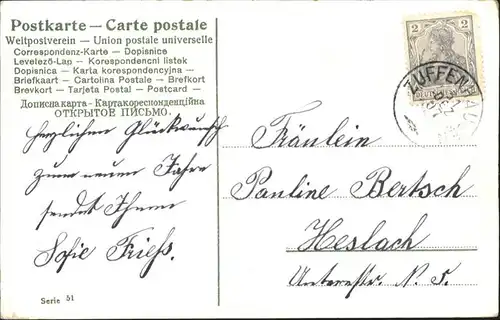 Postkarte — Carte postale
Weltpostverein — Union postale universelle
Correspondenz-Karte — Dopisnice
Levelező-Lap — Korespondencni listek
Dopisnica — Karta korespondencyjna —
Briefkaart — Cartolina Postale — Brefkort
Brevkort — Tarjeta Postal — Postcard —
Дописна карта - Картка кореспонденційна
ОТКРЫТОЕ ПИСЬМО.
herzlichen Glückwunsch
zum neuen Jahre
sendet Ihnen
Sofie Friess.
Serie 51
2 2
ZUFFENHAUSEN
31
DEZ
Fräulein
Pauline Bertsch
Heslach
Unterestr. N. 5.